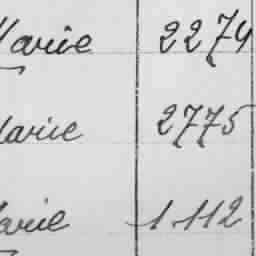 Marie 2274
Marie 2775
Marie 1112